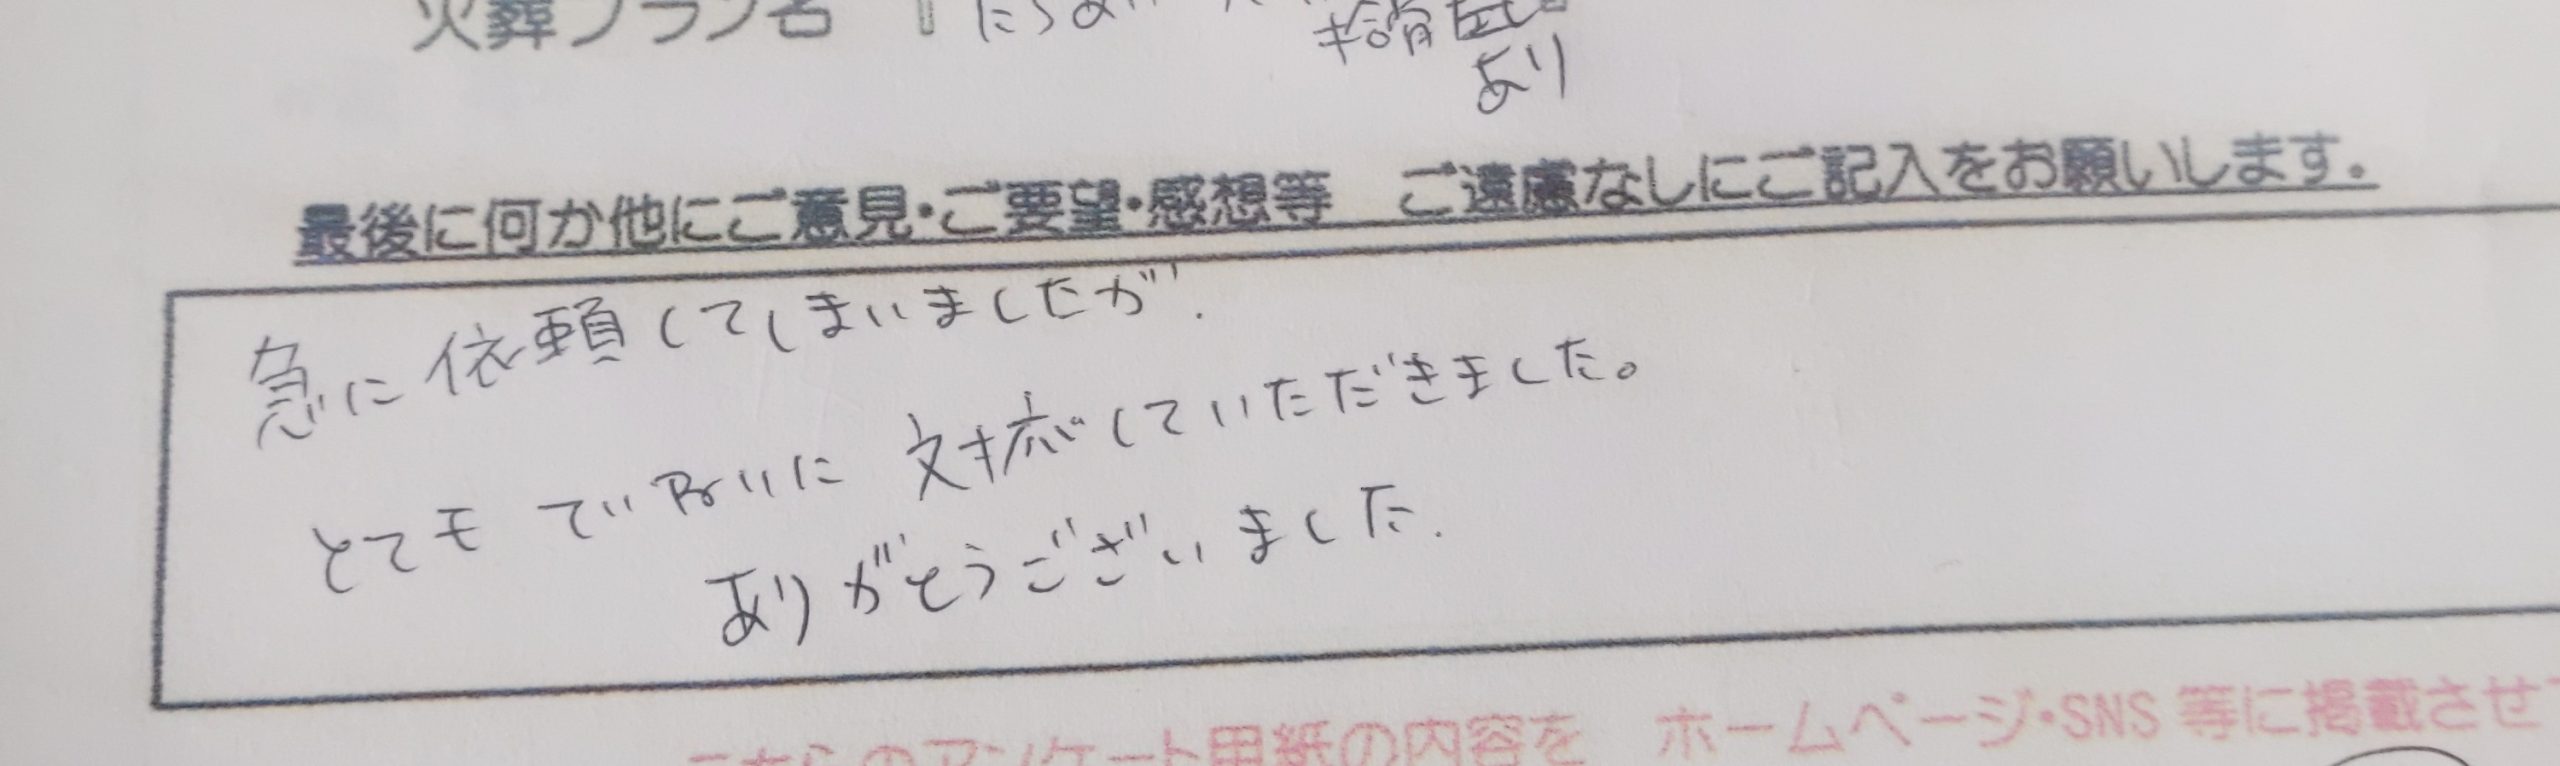 火葬プラン名
より
最後に何か他にご意見・ご要望・感想等　ご遠慮なしにご記入をお願いします。
急に依頼してしまいましたが、
とてもていねいに対応していただきました。
ありがとうございました.
こちらのアンケート用紙の内容を　ホームページ・SNS 等に掲載させ